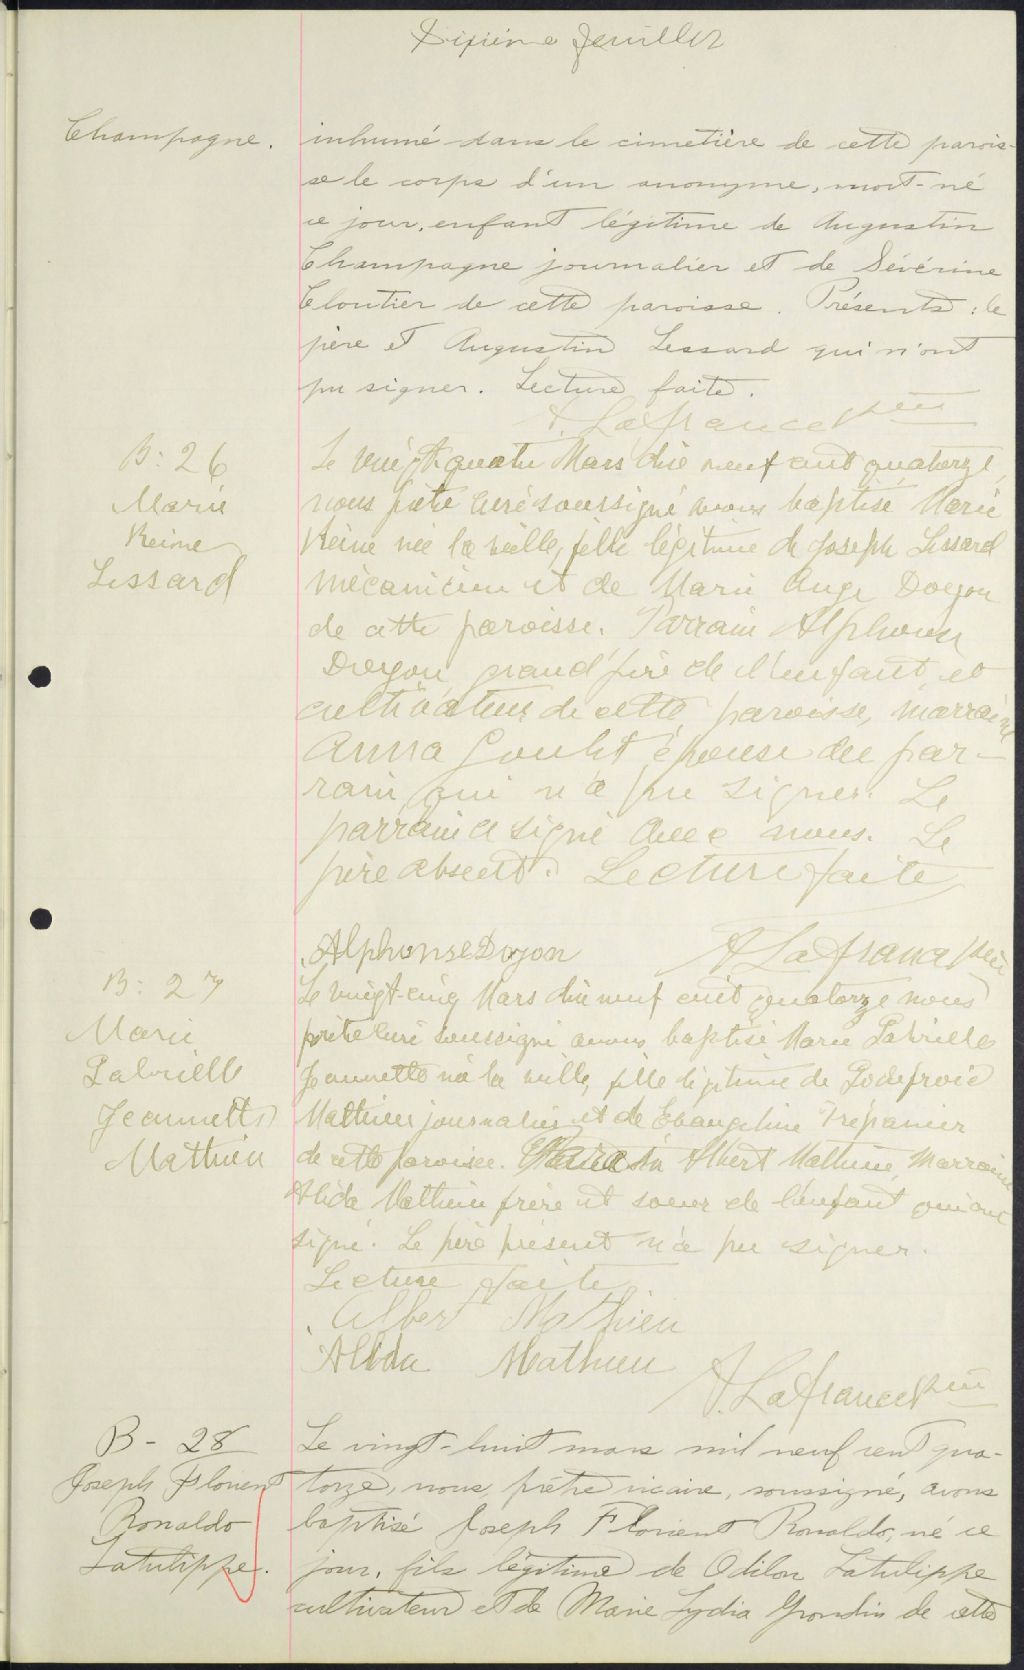 Dixième feuillet
Champagne.
inhumé dans le cimetière de cette parois-
se le corps d'un anonyme, mort-né
ce jour, enfant légitime de Augustin
Champagne journalier et de Sévérine
Cloutier de cette paroisse. Présents : le
père et Augustin Lessard qui n'ont
pu signer. Lecture faite.
A. Lafrance ptre
B: 26
Marie
Reine
Lessard
Le vingt quatre Mars dix neuf cent quatorze,
nous prêtre curé soussigné avons baptisé Marie
Reine née la veille, fille légitime de Joseph Lessard
mécanicien et de Marie Ange Doyon
de cette paroisse. Parrain Alphonse
Doyon grand'père de l'enfant et
cultivateur de cette paroisse, marraine
Anna Goulet épouse du par-
rain qui n'a pu signer. Le
parrain a signé avec nous. Le
père absent. Lecture faite
Alphonse Doyon
A Lafrance ptre
B: 27
Marie
Gabrielle
Jeannette
Mathieu
Le vingt-cinq Mars dix neuf cent quatorze nous
prêtre curé soussigné avons baptisé Marie Gabrielle
Jeannette née la veille, fille légitime de Godefroie
Mathieu journalier et de Evangeline Trépanier
de cette paroisse. Parrain Albert Mathieu, Marraine
Alida Mathieu frère et soeur de l'enfant qui ont
signé. Le père présent n'a pu signer.
Lecture faite
Albert Mathieu
Alida Mathieu
A. Lafrance ptre
B - 28
Joseph Florient
Ronaldo
Latulippe.
Le vingt-huit mars mil neuf cent qua-
torze, nous, prêtre vicaire, soussigné, avons
baptisé Joseph Florient Ronaldo, né ce
jour, fils légitime de Odilon Latulippe
cultivateur et de Marie Lydia Grondin de cette